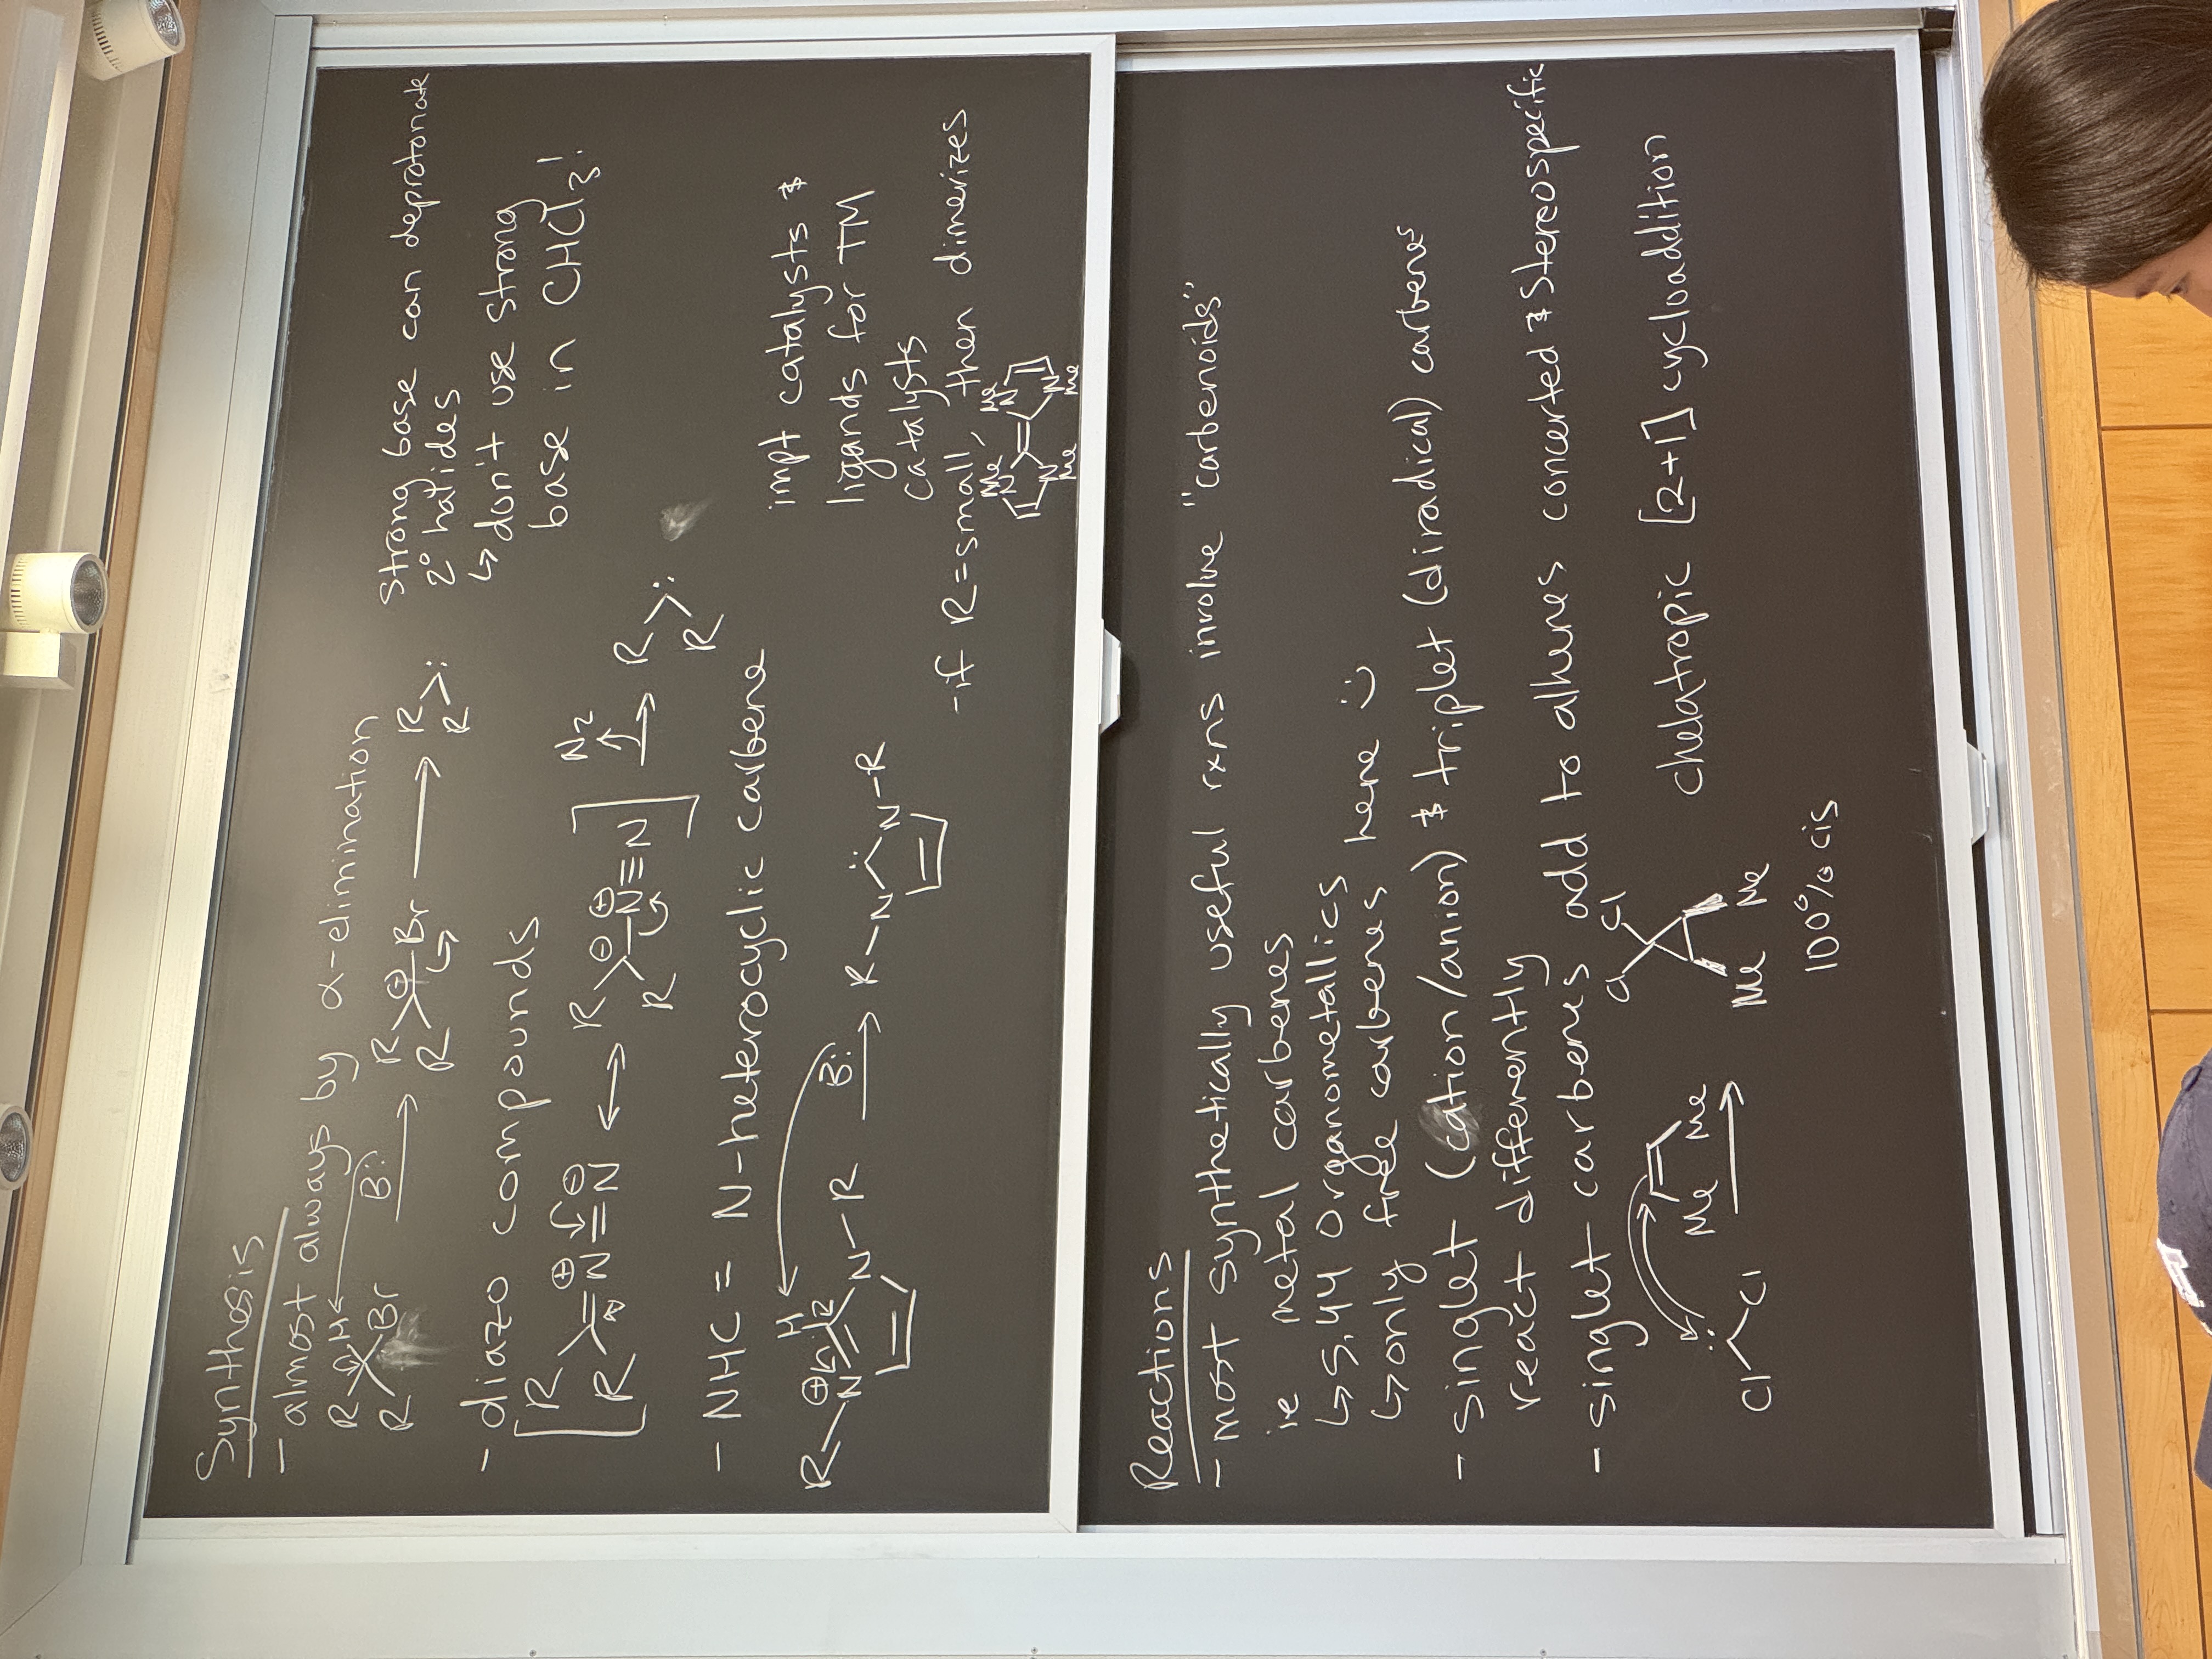 Synthesis
- almost always by α-elimination
R H
R Br B: R ⊖ Br R
R R :
strong base can deprotonate
2° halides
↳ don't use strong
base in CHCl3!
- diazo compounds
[R ⊕ ⊖ R ⊖ ⊕ ] N2 R
R =N=N ↔ R -N≡N → R :
- NHC = N-heterocyclic carbene
H
R ⊕ N N-R B: R-N : N-R
impt catalysts &
ligands for TM
catalysts
- if R=small, then dimerizes
Me Me
N N
N N
Me Me
Reactions
- most synthetically useful rxns involve "carbenoids"
ie metal carbenes
↳ 5.44 Organometallics
↳ only free carbenes here :)
- singlet (cation/anion) & triplet (diradical) carbenes
react differently
- singlet carbenes add to alkenes concerted & stereospecific
Cl Cl
Me Me
Cl : Cl
Me Me
chelatropic [2+1] cycloaddition
100% cis